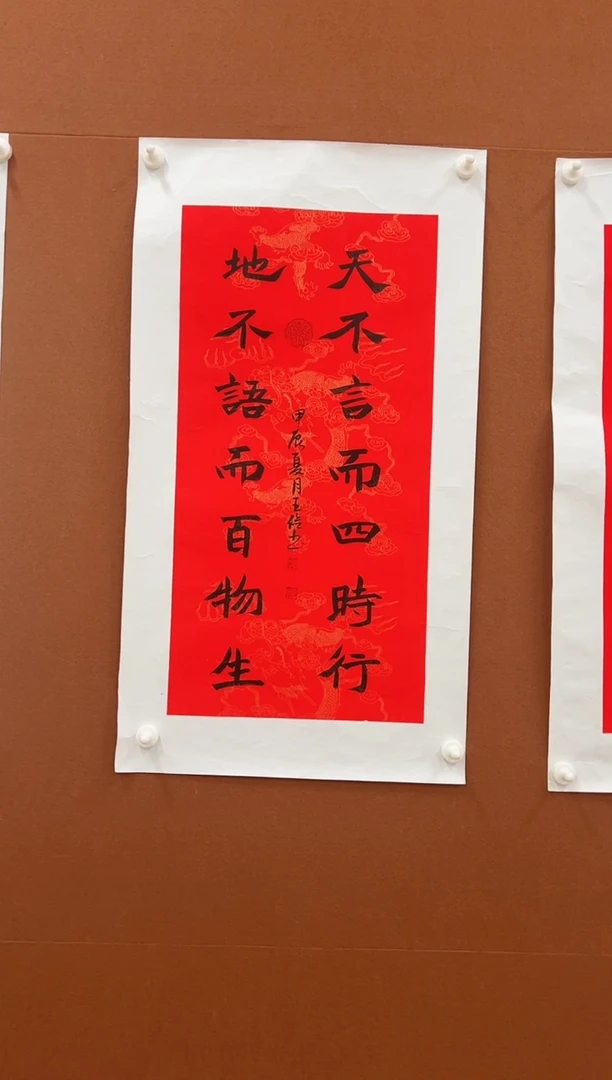 天不言而四時行
地不語而百物生
甲辰夏月王